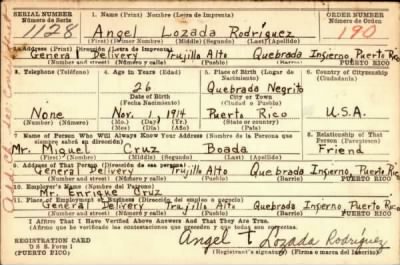 SERIAL NUMBER
Número de Serie
1128
1. Name (Print) Nombre (Letra de Imprenta)
Angel Lozada Rodríguez
(First) (Primer Nombre) (Middle) (Segundo) (Last) (Apellido)
ORDER NUMBER
Número de Orden
190
2. Address (Print) Dirección (Letra de Imprenta)
General Delivery Trujillo Alto Quebrada Infierno, Puerto Rico
(Number and street) (Número y calle) (Town) (Pueblo) (Barrio) (Barrio) PUERTO RICO
3. Telephone (Teléfono)
None
(Number) (Número)
4. Age in Years (Edad)
26
Date of Birth
(Fecha Nacimiento)
Nov. 1914
(Mo.) (Day) (Yr.)
(Mes) (Día) (Año)
5. Place of Birth (Lugar de Nacimiento)
Quebrada Negrito
City or Town
(Ciudad o Pueblo)
Puerto Rico
(State or country)
6. Country of Citizenship
(Ciudadanía)
U.S.A.
7. Name of Person Who Will Always Know Your Address (Nombre de la Persona que siempre sabrá su dirección)
Mr. Miguel Cruz Boada
(First) (Nombre) (Middle) (Segundo) (Last) (Apellido)
8. Relationship of That Person (Parentesco)
Friend
9. Address of That Person (Dirección de esa persona)
General Delivery Trujillo Alto Quebrada Infierno, Puerto Rico
(Number and street) (Número y calle) (Town) (Pueblo) (Barrio) (Barrio) PUERTO RICO
10. Employer's Name (Nombre del Patrono)
Mr. Enrique Cruz
11. Place of Employment or Business (Dirección del empleo o negocio)
General Delivery Trujillo Alto Quebrada Infierno, Puerto Rico
(Number and street) (Número y calle) (Town) (Pueblo) (Barrio) (Barrio) PUERTO RICO
I Affirm That I Have Verified Above Answers and That They Are True.
(Afirmo que he verificado las contestaciones que preceden y que todas son ciertas.)
REGISTRATION CARD
D S S. Form 1
PUERTO RICO
Angel T Lozada Rodriguez
(Registrant's signature) (Firma o marca del inscrito)